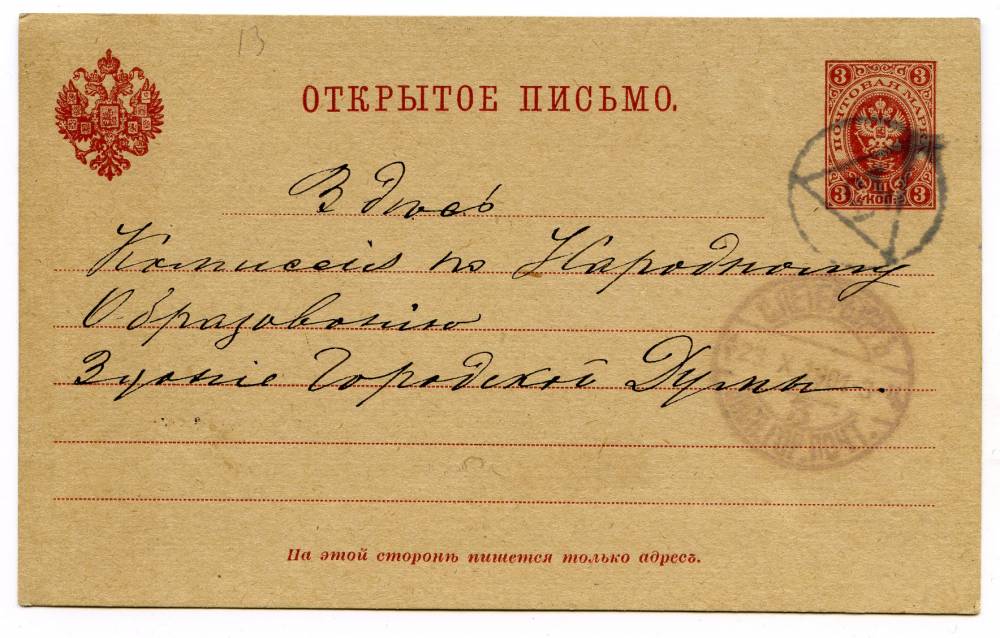 13
ОТКРЫТОЕ ПИСЬМО.
3 ПОЧТОВАЯ МАРКА 3
3 КОП. 3
Здѣсь
Комиссія по Народному
Образованію
Зданіе Городской Думы.
С.ПЕТЕРБУРГЪ
ГОР. ПОЧТ.
На этой сторонѣ пишется только адресъ.